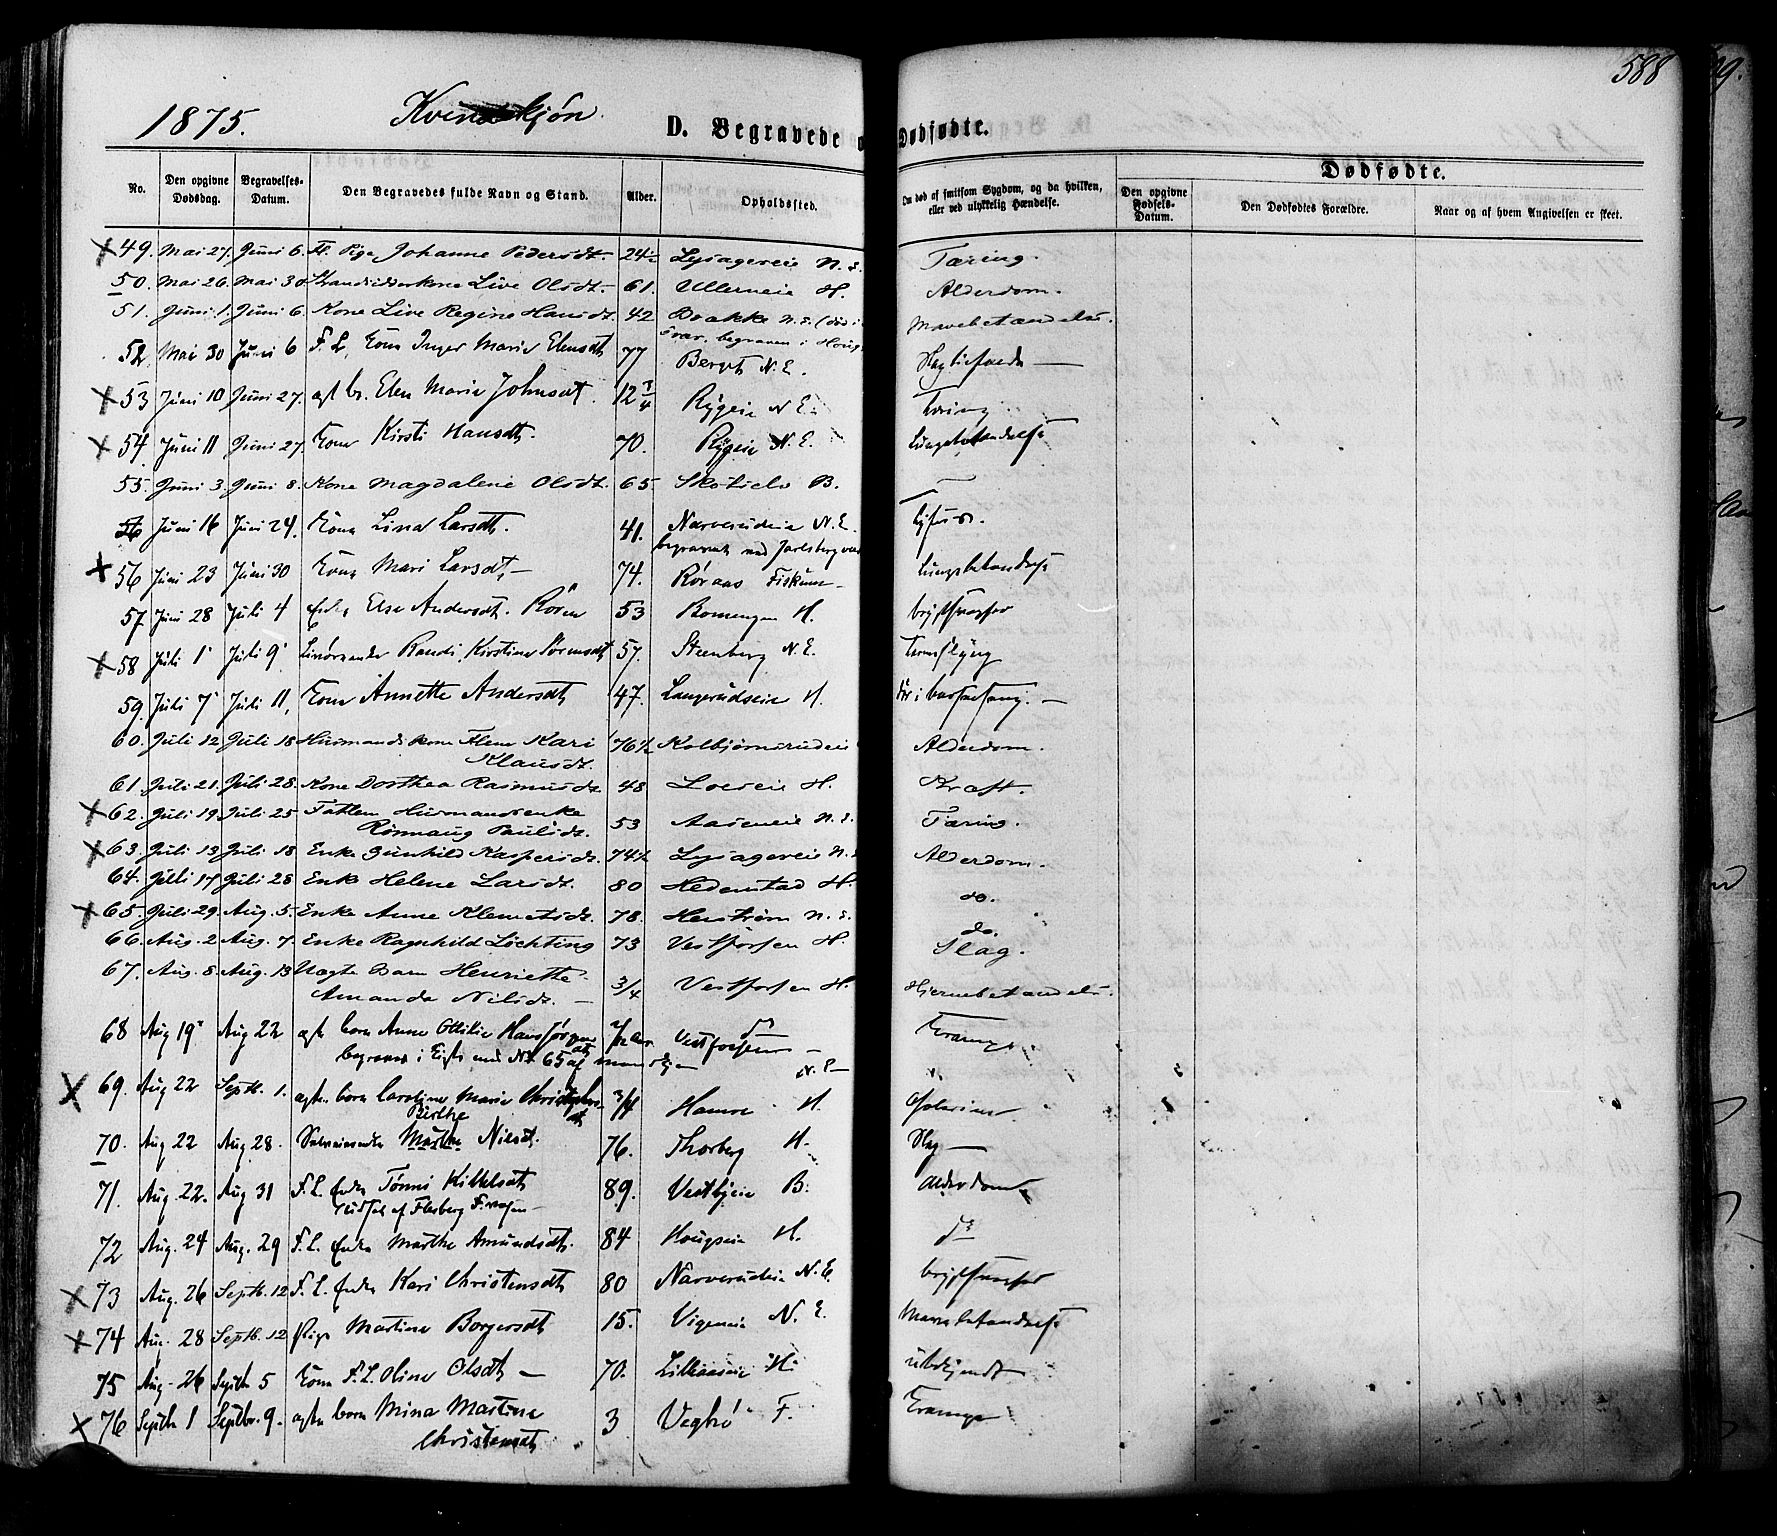 588
1875. Kvindekjøn.
D. Begravede o Dødfødte.
No.
Den opgivne Dødsdag.
Begravelses-Datum.
Den Begravedes fulde Navn og Stand.
Alder.
Opholdssted.
Om død af smitsom Sygdom, og da hvilken, eller ved ulykkelig Hændelse.
Dødfødte.
Den opgivne Fødsels-Datum.
Den Dødfødtes Forældre.
Naar og af hvem Angivelsen er skeet.
49. Mai 27. Juni 6. Pige Johanne Pedersdt. 24½ Lysagereie N. E. Tæring.
50. Mai 26. Mai 30 Live Olsdt. 61. Ullerneie H. Alderdom.
51. Juni 1. Juni 6. Kone Live Regine Hansdt. 42 Bakke N. E. (død i Mavebetændelse.
begraven i Houg
52 Mai 30 Juni 6 F. L. Kone Inger Marie Elensdt 77 Berget N. E.
53 Juni 10 Juni 27. ægt b. Elen Marie Johnsdt. 12 3/4 Rygeie N E. Tæring
54. Juni 11 Juni 27. Kone Kirsti Hansdt. 70. Rygeie N. E. Lungebetændelse
55. Juni 3. Juni 8. Kone Magdalene Olsdt. 65. Skotselv B. —
56 Juni 16 Juni 24. Kone Lina Larsdt. 41. Narverudeie N. E. Tyfus.
56 Juni 23 Juni 30 Kone Mari Larsdt. 74. Røraas Fiskum Lungebetændelse
57 Juni 28 Juli 4 Enke Else Andersdt. Røren 53 Bomengen H.
58 Juli 1 Juli 9 Randi Kirstine Sørensdt 57. Steenberg N. E.
59. Juli 7 Juli 11, Kone Annette Andersdt 47. Langerudseie H. Død i barselseng.
60. Juli 12 Juli 18 Husmandskone Kari Klausdt. 76½ Kolbjørnsrudeie Alderdom.
61. Juli 21. Juli 28. Kone Dorthea Rasmusdt. 48 Loeseie H. Kræft.
62. Juli 19 Juli 25 Fattem Husmandsenke Rønnaug Paulsdt. 53 Aaseneie N. E. Tæring.
63. Juli 13 Juli 18 Enke Gunhild Kaspersdt. 74½ Lysagereie N. Alderdom.
64. Juli 17 Juli 28 Enke Helene Larsdt. 80 Hedenstad H. do.
65. Juli 29. Aug. 5. Enke Anne Klemetsdt. 78. Henstrøm N. E. do.
66. Aug. 2 Aug. 7. Enke Ragnhild Lichting 73 Vestfossen H. Slag.
67. Aug. 8 Aug. 13 Uægte Barn Henriette Amanda Nilsdt. — 3/4 Vestfossen H. Hjernebetændelse.
68 Aug 19 Aug 22 ægte barn Anne Ottilie Hans Jørgensdt Vestfossen Krampe
begraven i Kiste med No 65 af mandkjøn N. E.
69. Aug 22 Septb. 1. ægte barn Caroline Marie Christophersdt 3/4 Hamre H.
70. Aug 22 Aug 28. Berthe Marthe Nilsdt. 76. Thorberg H. Slag
71. Aug 22. Aug 31 F. L. Enke Tønni Kittelsdt 89. Vestbyeie B. Alderdom
af Flesberg
72 Aug. 24 Aug. 29 F. L. Enke Marthe Amundsdt. 84 Hougseie H. do
73 Aug. 26 Septb. 12 F. L. Enke Kari Christensdt 80 Narverudeie N. E.
74 Aug. 28 Septb. 12 Pige Martine Borgersdt 15. Vigeneie N. E. Mavebetændelse
75 Aug. 26 Septbr 5 Kone F. L. Oline Olsdt — 70. Lilleaaseie H. ubekjendt
76 Septbr 1 Septbr. 9. ægte barn Mina Martine Christensdt 3 Vegbro F. Krampe